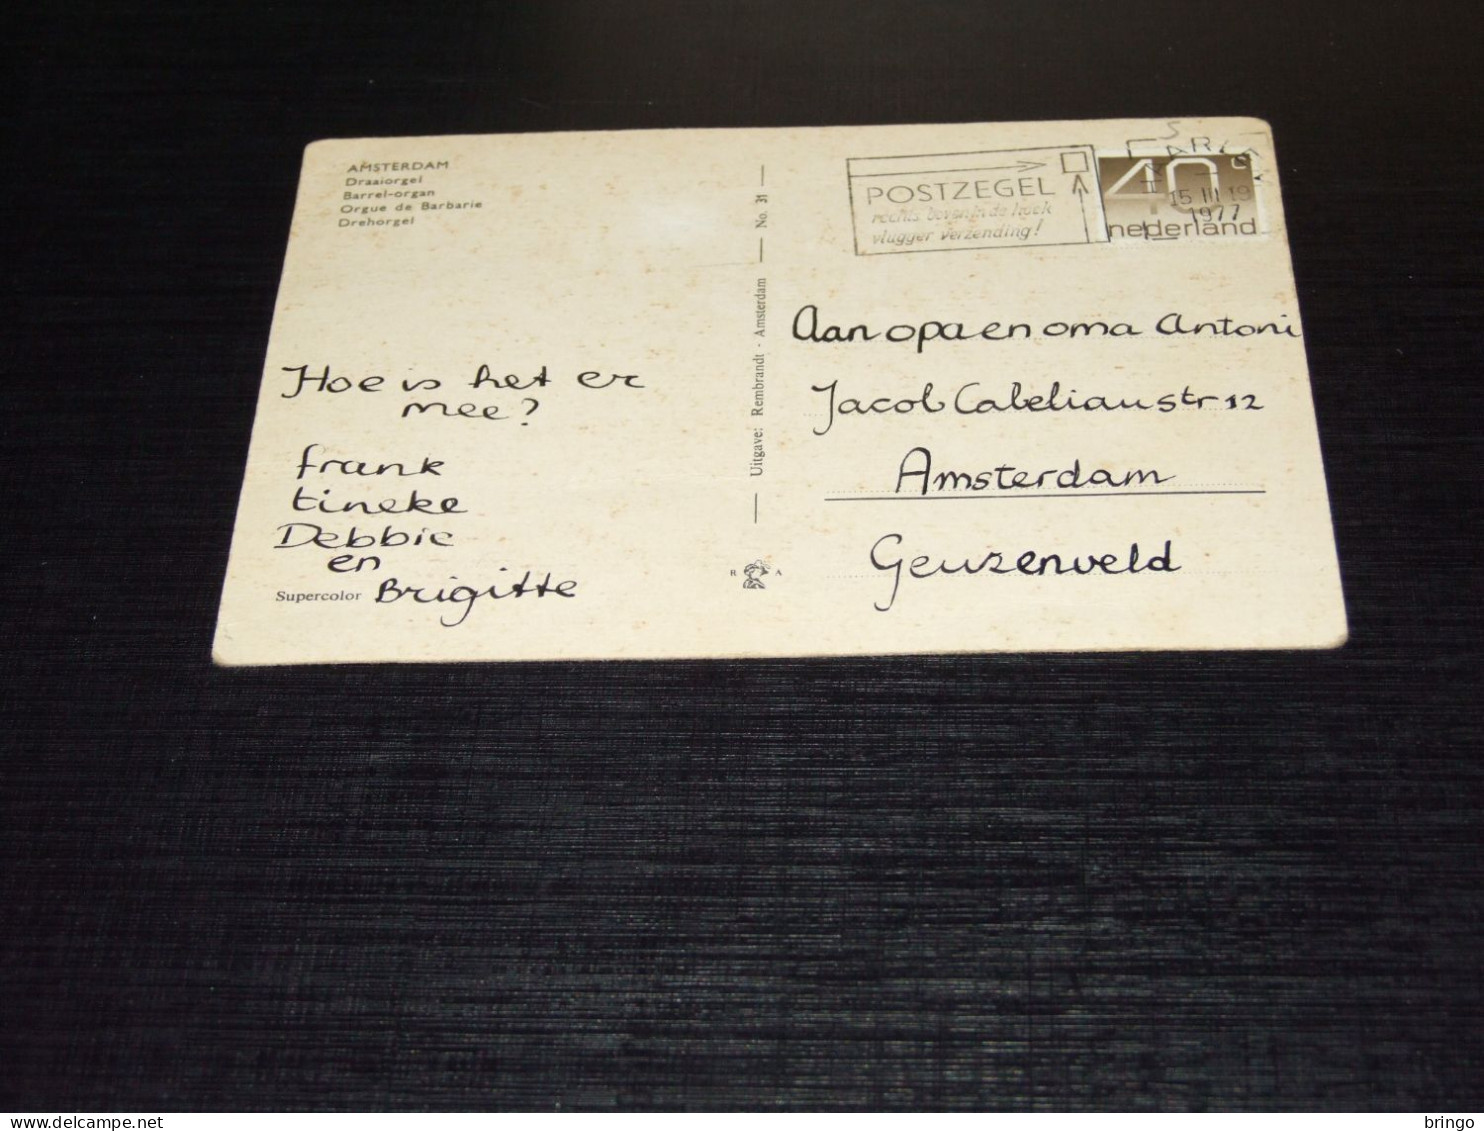 AMSTERDAM
Draaiorgel
Barrel-organ
Orgue de Barbarie
Drehorgel
Hoe is het er
mee?
Frank
tineke
Debbie
en
Brigitte
Supercolor
Uitgave: Rembrandt - Amsterdam
No. 31
R A
POSTZEGEL
rechts boven in de hoek
vlugger verzending!
40c
nederland
15 III 19
1977
Aan opa en oma Antoni
Jacob Cabeliaustr 12
Amsterdam
Geuzenveld
bringo